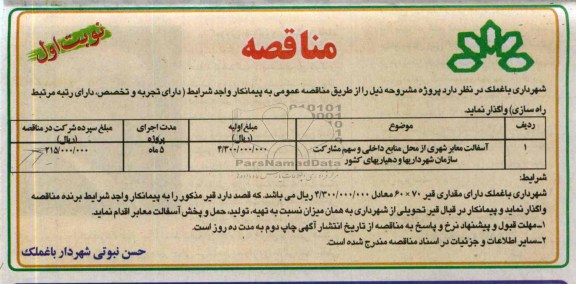 مناقصه
نوبت اول
شهرداری باغملک در نظر دارد پروژه مشروحه ذیل را از طریق مناقصه عمومی به پیمانکار واجد شرایط (دارای تجربه و تخصص، دارای رتبه مرتبط
راه سازی) واگذار نماید.
ردیف موضوع مبلغ اولیه (ریال) مدت اجرای پروژه مبلغ سپرده شرکت در مناقصه (ریال)
۱ آسفالت معابر شهری از محل منابع داخلی و سهم مشارکت سازمان شهرداریها و دهیاریهای کشور ۴/۳۰۰/۰۰۰/۰۰۰ ۵ ماه ۲۱۵/۰۰۰/۰۰۰
ParsNamadData
شرایط:
شهرداری باغملک دارای مقداری قیر ۷۰×۶۰ معادل ۴/۳۰۰/۰۰۰/۰۰۰ ریال می باشد. که قصد دارد قیر مذکور را به پیمانکار واجد شرایط برنده مناقصه
واگذار نماید و پیمانکار در قبال قیر تحویلی از شهرداری به همان میزان نسبت به تهیه، تولید، حمل و پخش آسفالت معابر اقدام نماید.
۱-مهلت قبول و پیشنهاد نرخ و پاسخ به مناقصه از تاریخ انتشار آگهی چاپ دوم به مدت ده روز است.
۲-سایر اطلاعات و جزئیات در اسناد مناقصه مندرج شده است.
حسن نبوتی شهردار باغملک